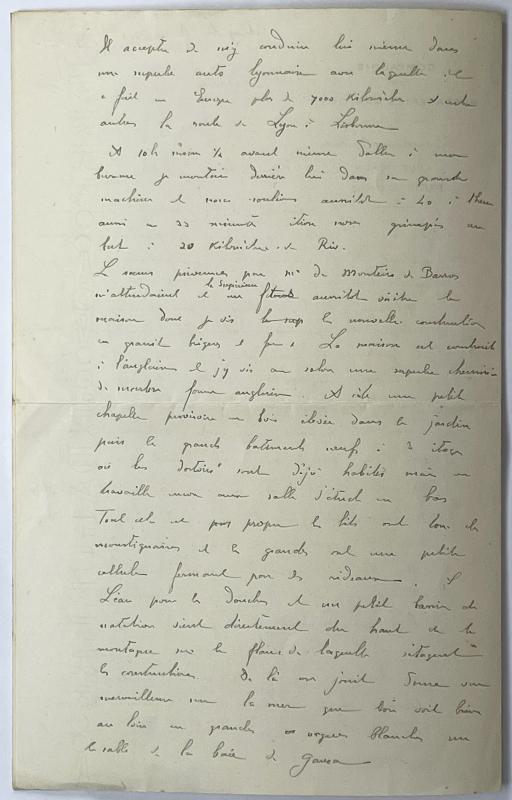 Il accepta de m'y conduire lui même dans
une superbe auto lyonnaise avec laquelle il
a fait en Europe plus de 7000 kilomètres et entre
autres la route de Lyon à Lisbonne
A 10h moins 1/4 avant même d'aller à mon
bureau je montais derrière lui dans sa grande
machine et nous roulions aussitôt à 40 à l'heure
aussi en 33 minutes étions nous grimpés au
but à 20 kilomètres de Rio.
Les sœurs prévenues par Mr de Monteiro de Barros
la Supérieure
m'attendaient et me aussitôt visiter la
maison dont je vis la nouvelle construction
en granit briques et fer. La maison est construite
à l'anglaise et j'y vis au salon une superbe cheminée
de marbre forme anglaise. A côté une petite
chapelle provisoire en bois élevée dans le jardin
puis les grands bâtiments neufs à 3 étages
où les dortoirs sont déjà habités mais on
travaille encore aux salles d'étude en bas
Tout cela est très propre les lits ont tous des
moustiquaires et les grandes ont une petite
cellule fermant par des rideaux.
L'eau pour les douches et un petit bassin de
natation vient directement du haut de la
montagne sur le flanc de laquelle s'étagent
les constructions. De là on jouit d'une vue
merveilleuse sur la mer que l'on voit briser
au loin en grandes vagues blanches sur
le sable de la baie de Gavea